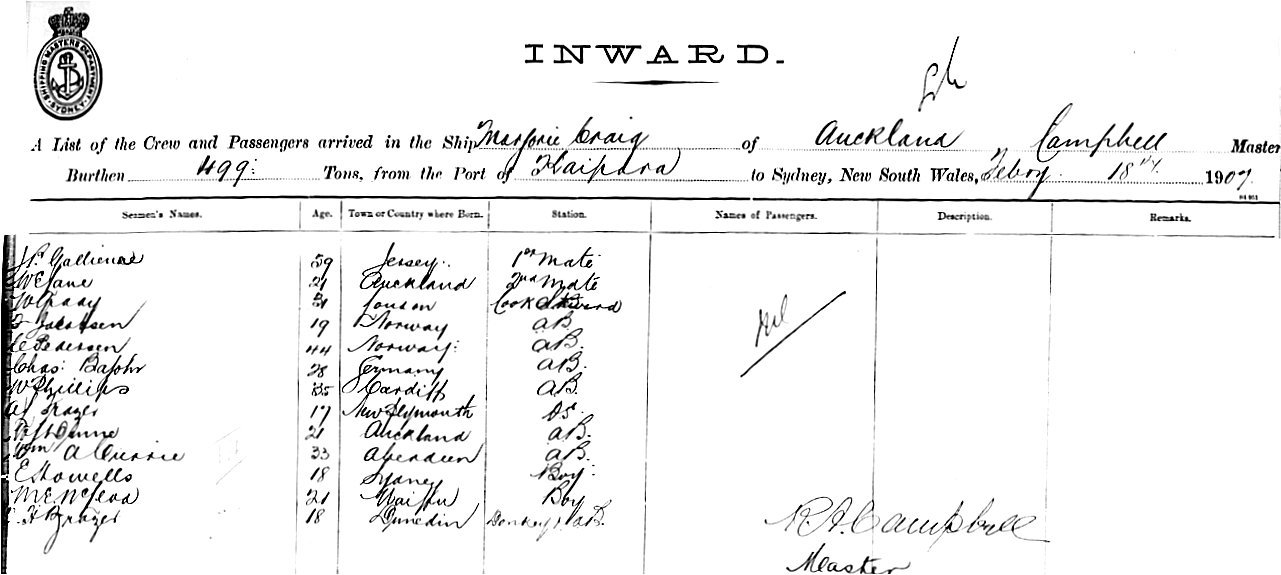 SHIPPING MASTERS DEPARTMENT SYDNEY
INWARD.
A List of the Crew and Passengers arrived in the Ship Marjorie Craig of Auckland Campbell Master
Burthen 499 Tons, from the Port of Kaipara to Sydney, New South Wales, Febry 18th 1907.
Seamen's Names. Age. Town or Country where Born. Station. Names of Passengers. Description. Remarks.
Gallienne 59 Jersey 1st Mate
W E Jane 21 Auckland 2nd Mate
London Cook Steward
Jacobsen 19 Norway AB.
Pedersen 44 Norway AB.
Chas: 28 Germany AB.
W Phillips 35 Cardiff AB.
Frazer 17 New Plymouth OS.
Dunne 21 Auckland AB.
Wm A Currie 33 Aberdeen AB.
E Howells 18 Sydney Boy
McLeod 21 Waipu Boy
18 Dunedin Donkey AB.
Nil
R. A. Campbell
Master